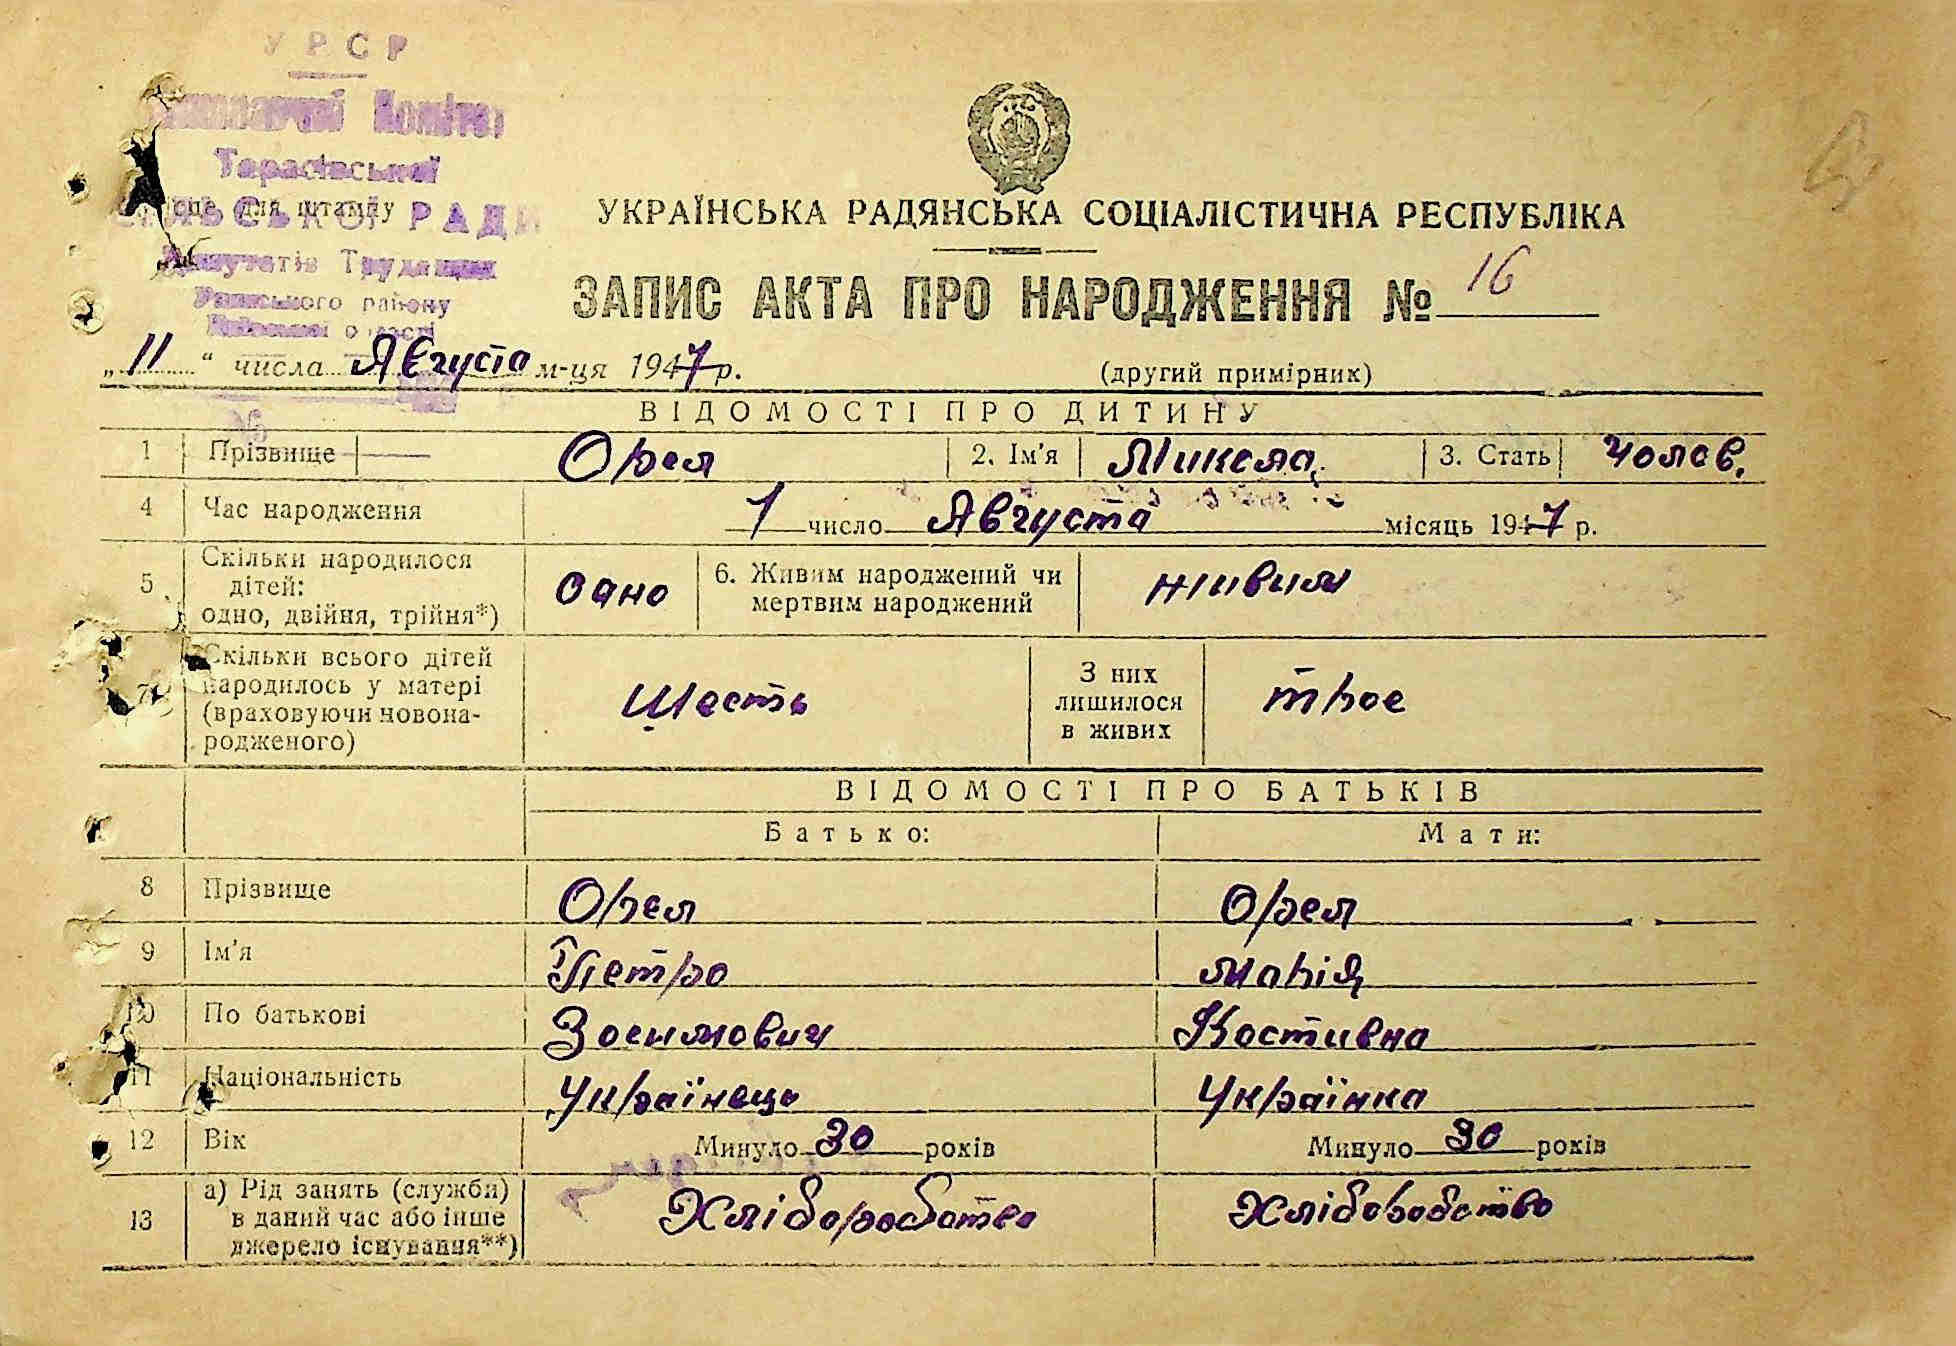 УРСР
Виконавчий Комітет
Тарасівської
СІЛЬСЬКОЇ РАДИ
Місце для штампу
Депутатів Трудящих
району
Київської області
УКРАЇНСЬКА РАДЯНСЬКА СОЦІАЛІСТИЧНА РЕСПУБЛІКА
ЗАПИС АКТА ПРО НАРОДЖЕННЯ № 16
„11“ числа Августа м-ця 1947 р.
(другий примірник)
ВІДОМОСТІ ПРО ДИТИНУ
1 Прізвище Орел 2. Ім'я Микола 3. Стать чолов.
4 Час народження 1 число Августа місяць 1947 р.
5 Скільки народилося дітей: одно, двійня, трійня*) одно 6. Живим народжений чи мертвим народжений живим
7 Скільки всього дітей народилось у матері (враховуючи новонародженого) шесть З них лишилося в живих трое
ВІДОМОСТІ ПРО БАТЬКІВ
Батько: Мати:
8 Прізвище Орел Орел
9 Ім'я Петро Марія
10 По батькові Зосимович Костивна
11 Національність Українець Українка
12 Вік Минуло 30 років Минуло 30 років
13 а) Рід занять (служби) в даний час або інше джерело існування**) Хліборобство Хліборобство